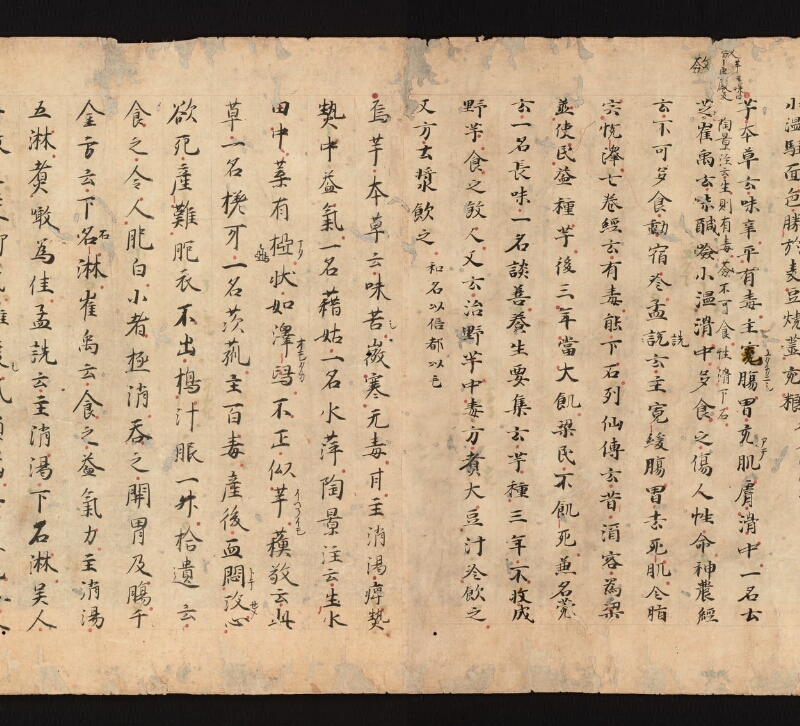 小温駐面色勝於麦豆焼蓋充粮
芋本草云味辛平有毒主寛腸胃充肌膚滑中一名云
陶景注云生則有毒莶不可食性滑下石
芝崔禹云味醎莶小温滑中多食之傷人性命神農經
云不可多食動宿冷孟詵云主寛緩腸胃去死肌令脂
宍悦澤七卷經云有毒能下石列仙傳云昔酒客為梁
並使民益種芋後三年當大飢梁民不飢死兼名菀
云一名長味一名談善養生要集云芋種三年不收成
野芋食之敓人又云治野芋中毒方煮大豆汁冷飲之
又方云漿飲之 和名以倍都以毛
烏芋本草云味苦微寒无毒甘主消渇痺𤍠
𤍠中益氣一名藉姑一名水萍陶景注云生水
田中葉有椏状如澤瀉不正似芋蘓敬云此
草一名槎牙一名茨菰主百毒産後血悶攻心
欲死産難胞衣不出搗汁服一升拾遺云
食之令人肥白小者極消呑之開胃及腸千
金方云下石淋崔禹云食之益氣力主消渇
五淋煮噉為佳孟詵云主消渇下石淋吴人